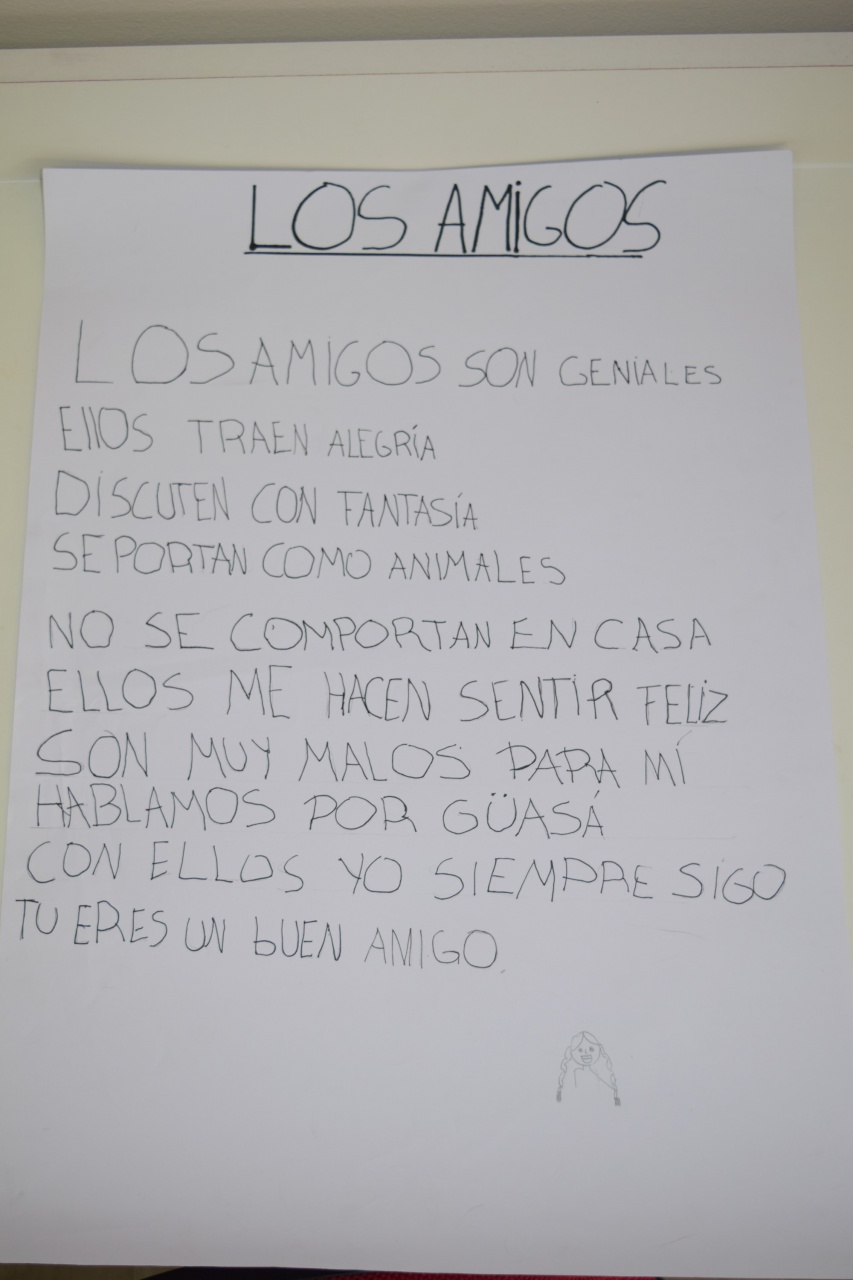 LOS AMIGOS
LOS AMIGOS SON GENIALES
EllOS TRAEN ALEGRÍA
DISCUTEN CON FANTASÍA
SE PORTAN COMO ANIMALES
NO SE COMPORTAN EN CASA
ELLOS ME HACEN SENTIR FELIZ
SON MUY MALOS PARA MÍ
HABLAMOS POR GÜASÁ
CON ELLOS YO SIEMPRE SIGO
TU ERES UN bUEN AMIGO.